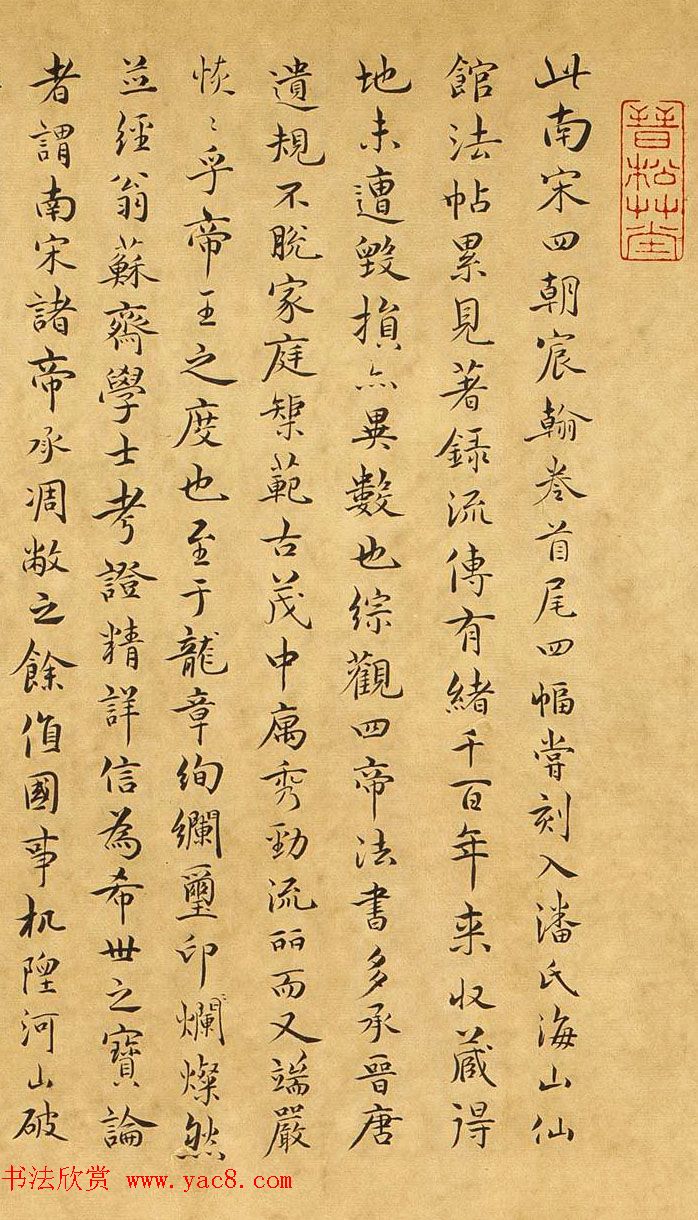 晉松草堂
此南宋四朝宸翰卷首尾四幅嘗刻入潘氏海山仙
館法帖累見著錄流傳有緒千百年來收藏得
地未遭毀損亦異數也綜觀四帝法書多承晉唐
遺規不脫家庭榘範古茂中寓秀勁流麗而又端嚴
恢〻乎帝王之度也至于龍章絢斕璽印爛燦然
並經翁蘇齋學士考證精詳信為希世之寶論
者謂南宋諸帝承凋敝之餘值國事杌隉河山破
书法欣赏 www.yac8.com